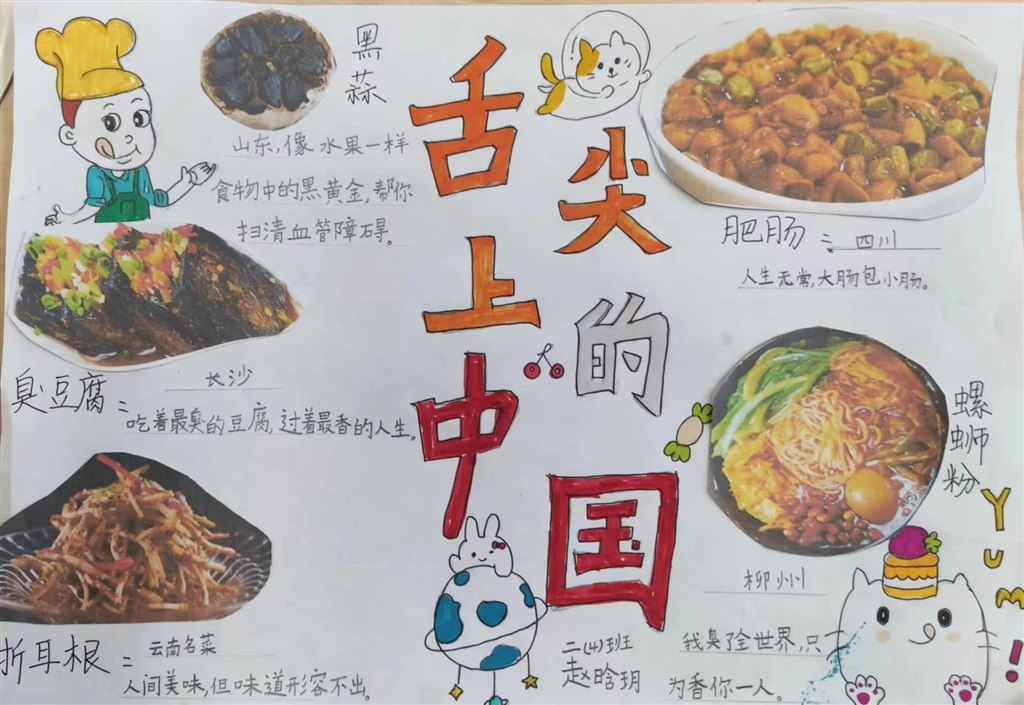 舌尖上的中国
黑蒜
山东,像水果一样
食物中的黑黄金,帮你
扫清血管障碍。
肥肠:四川
人生无常,大肠包小肠。
臭豆腐:长沙
吃着最臭的豆腐,过着最香的人生。
螺蛳粉
柳州
我臭了全世界,只
为香你一人。
Yum!
折耳根:云南名菜
人间美味,但味道形容不出。
二(4)班
赵晗玥